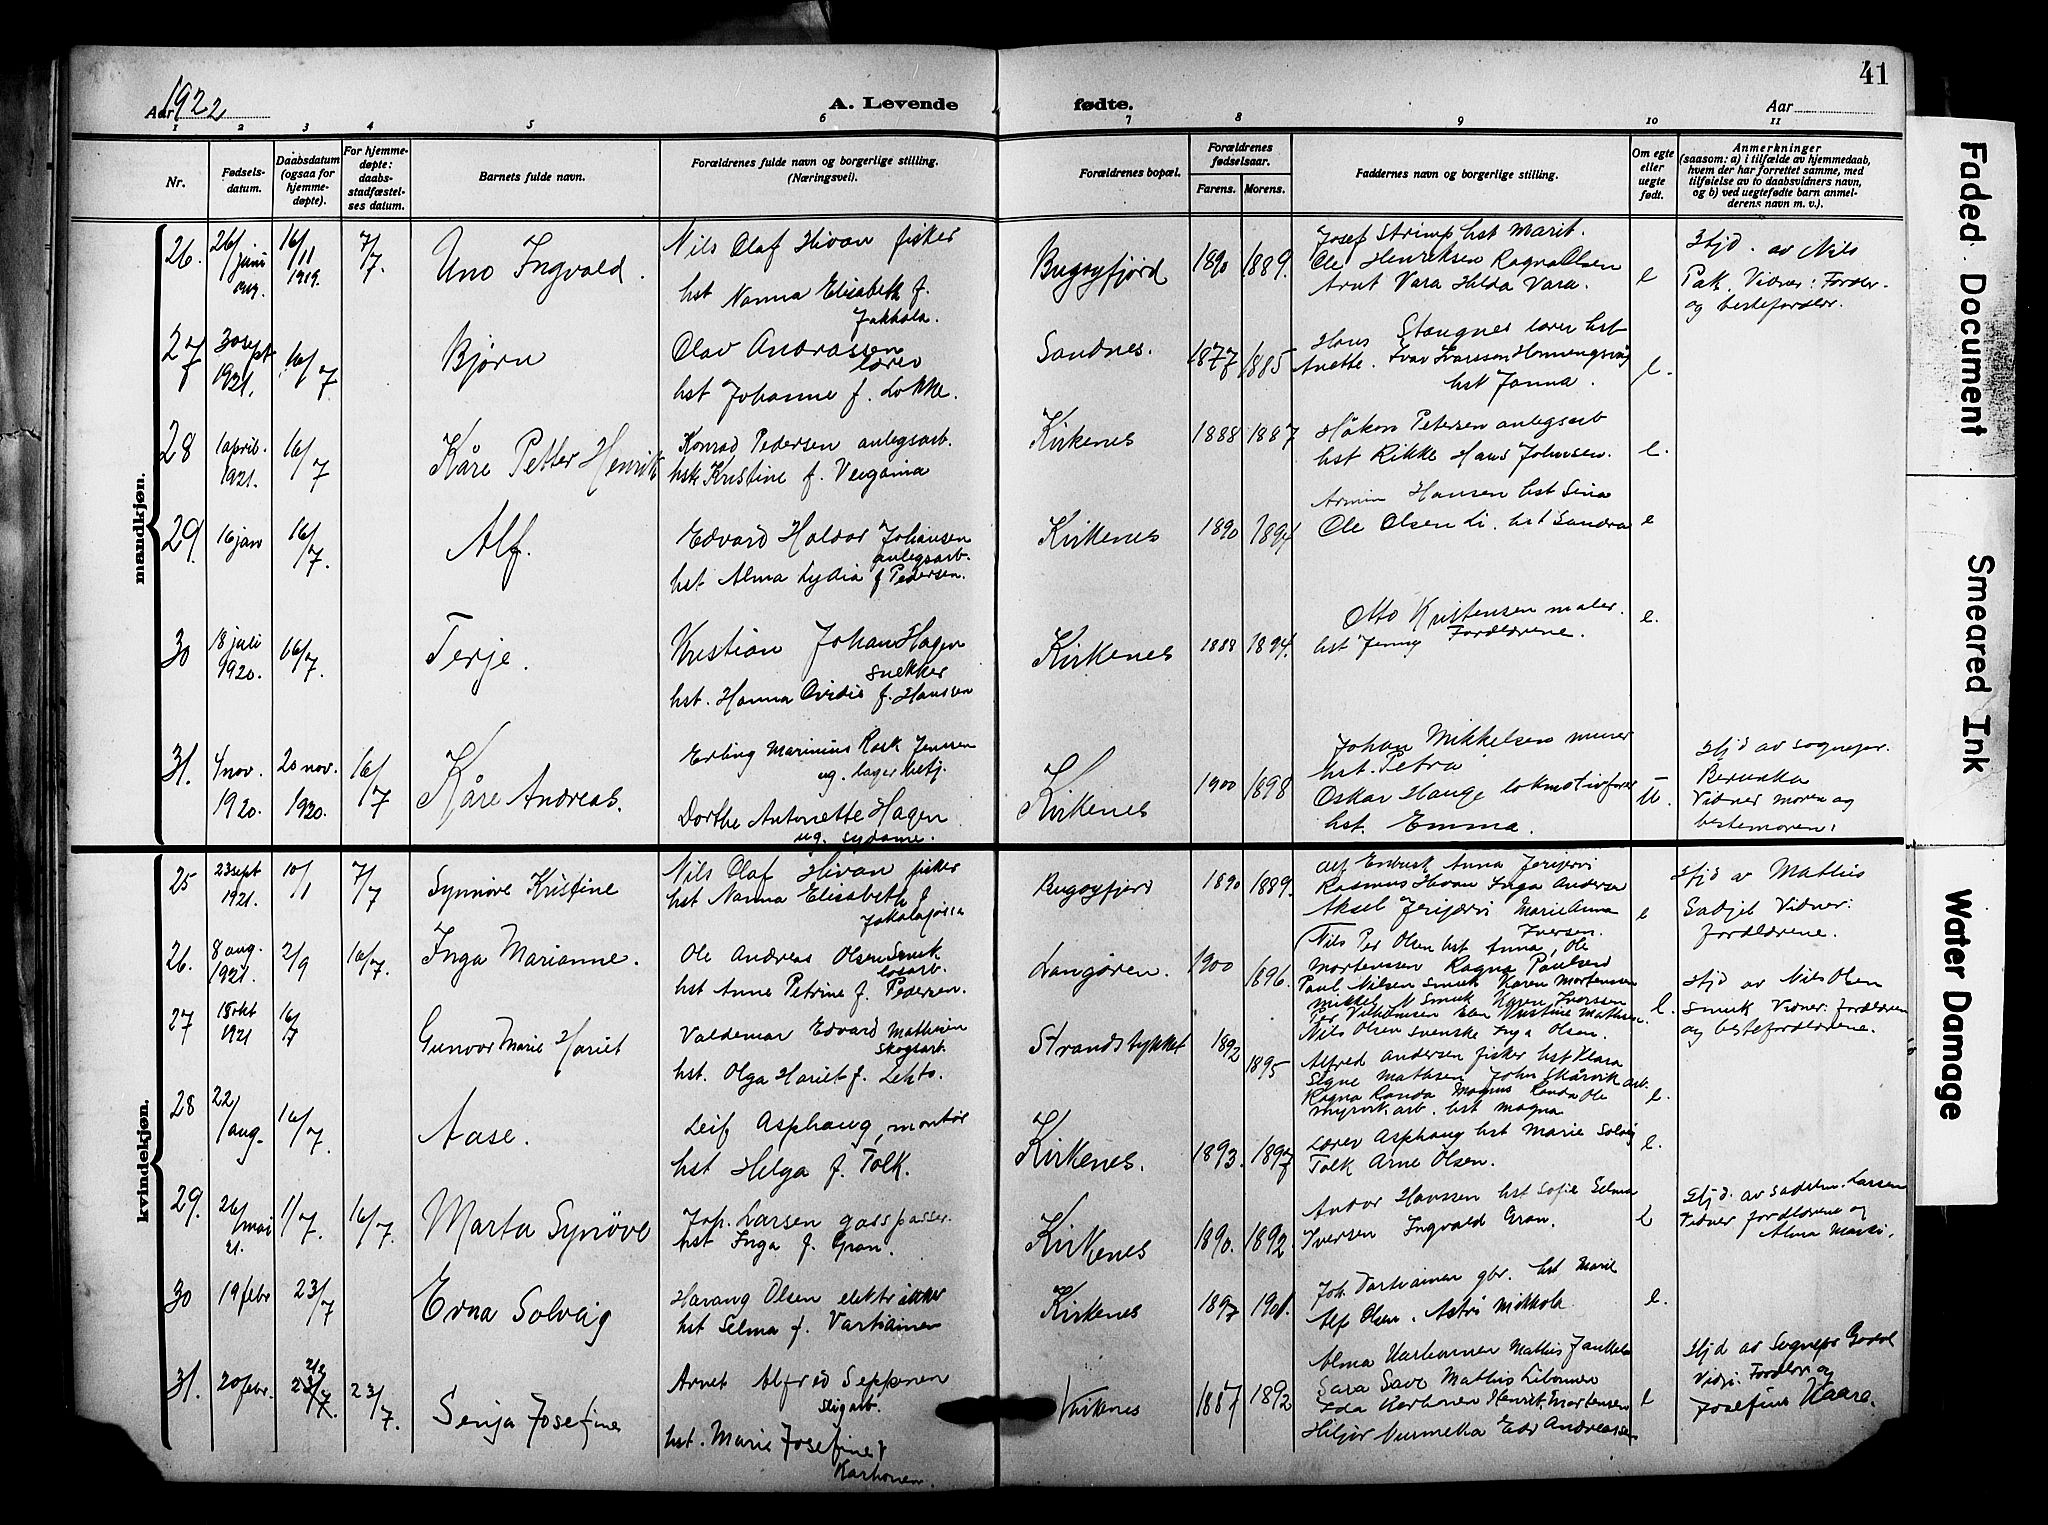 41
Aar 1922
A. Levende fødte.
Aar
1 2 3 4 5 6 7 8 9 10 11
Nr.
Fødsels-
datum.
Daabsdatum
(ogsaa for
hjemme-
døpte).
For hjemme-
døpte:
daabs-
stadfæstel-
ses datum.
Barnets fulde navn.
Forældrenes fulde navn og borgerlige stilling.
(Næringsvei).
Forældrenes bopæl.
Forældrenes
fødselsaar.
Farens. Morens.
Faddernes navn og borgerlige stilling.
Om egte
eller
uegte
født.
Anmerkninger
(saasom: a) i tilfælde av hjemmedaab,
hvem der har forrettet samme, med
tilføielse av to daabsvidners navn,
og b) ved uegtefødte barn anmel-
derens navn m. v.).
mandkjøn.
26. 26/juni 16/11 1919. 7/7. Uno Ingvald.
Nils Olaf Hivan fisker
hst Nanna Elisabeth f.
Bugøyfjord 1890 1889.
Josef Strimp hst Marit.
Ole Henriksen Ragna Olsen
Arnt Vara Hilda Vara. e
Hjd. av Nils
Pak. Vidner: Forældr.
og besteforældr.
27 30 sept 1921. 16/7. Bjørn
Olav Andrassen
lærer
hst Johanne f. Løkke.
Sandnes. 1877 1885
Hans Stangnes lærer hst
Anette. Ivar Ivarsson Honningsvåg
hst Janna. e.
28 1 april. 1921. 16/7 Kåre Petter Henrik
Konrad Pedersen anlegsarb.
hst Kristine f. Vergania
Kirkenes 1888 1887
Håkon Petersen anlegsarb
hst Rikke Hans Johnsen. e.
29. 16 jan 16/7. Alf.
Edvard Haldor Johansen
anlegsarb.
hst Alma Lydia f Pedersen.
Kirkenes 1890 1894
Armin Hansen hst Sina
Ole Olsen Li. hst Sandra e
30 18 juli 1920. 16/7. Terje.
Kristian Johan Hagen
snekker
hst. Hanna Ovidie f. Hanssen
Kirkenes 1888 1894.
Otto Kristensen maler.
hst Jenny Forældrene. e.
31. 4 nov. 1920. 20 nov. 1920. 16/7 Kåre Andreas.
Erling Marinius Rask Jenssen
ug. lagerbetj.
Dorthe Antonette Hagen
ug. sydame.
Kirkenes 1900 1898
Johan Mikkelsen murer
hst. Petra
Oskar Hauge lokmotivfører
hst. Emma. U.
Hjd av sognepr.
Vidner moren og
bestemoren.
kvindekjøn.
25 23 sept 1921. 10/1 7/7 Synnøve Kristine
Nils Olaf Hivan fisker
hst Nanna Elisabeth f
Bugøyfjord 1890 1889.
Rasmus Hivan Inga Andersa
Aksel Jerijærvi Marie Anna
Iversen. e
Hjd av Mathis
Sabjel Vidner:
Forældrene.
26. 8 aug. 1921. 2/9 16/7. Inga Marianne.
Ole Andreas Olsen Smuk
løsarb.
hst Anne Petrine f. Pedersen.
Langøren. 1900 1896.
Nils Per Olsen hst Anna, Ole
Mortenssen Ragna Paulsen
Paul Nilsen Smuk Karen Mortensen
Mikkel N Smuk Karen Iverssen
Per Vilhelmsen Elen Kristine Mathisen.
Nils Olsen svenske Inga Olsen. e.
Hjd av Nils Olsen
Smuk Vidner: Forældrene
og besteforældrene.
27 18 okt 1921 16/7 Gunvor Marie Hariet
Valdemar Edvard Mathisen
skogsarb.
hst. Olga Hariet f. Lehto.
Strandstykket 1892 1895
Alfred Andersen fisker hst Klara
Signe Mathisen John Skårvik arb.
Ragna Randa Magnus Randa Ole
Myrvik arb. hst Magna e.
28 22/aug. 16/7. Aase.
Leif Asphaug, montør
hst Helga f. Tolk.
Kirkenes. 1893. 1897
Lærer Asphaug hst Marie Solvig
Tolk Arne Olsen. e.
29. 26/mai 21. 11/7. 16/7. Marta Synøve
Joh. Larsen gasspasser.
hst Inga f. Gran.
Kirkenes 1890. 1892
Andor Hanssen hst Sofie Selma
Iversen Ingvald Gran. e
Hjd. av Larsen
Vidner forældrene og
Alma Marki.
30 19 febr 23/7 Erna Solvåg
Harang Olsen elektrikker
hst Selma f. Vartiainen
Kirkenes 1897 1901.
Joh Vartiainen gbr. hst Marie
Alf Olsen. Astri Mikkola e.
31. 20 febr. 23/7. 23/7. Senja Josefine
Arnet Alfred Seppenen
hst. Marie Josefine f
Karhonen
Kirkenes 1887 1892
Hjd av Sognepr
Vidn: Forældr og
Josefine Kaara.
Faded Document
Smeared Ink
Water Damage